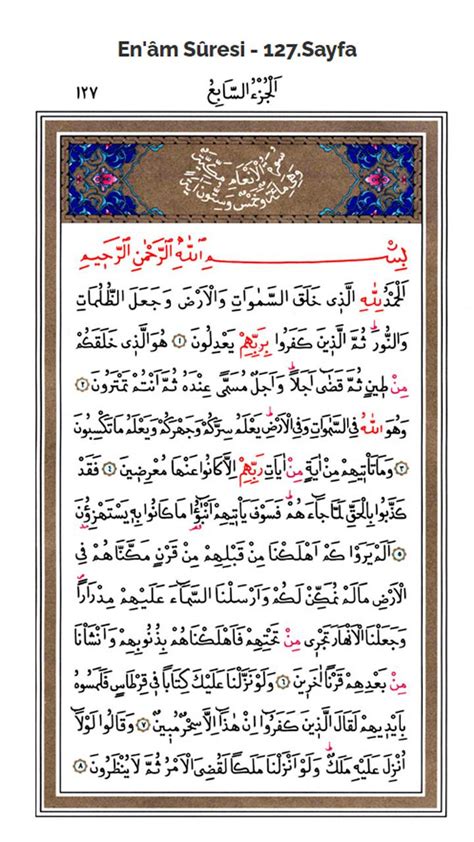 En'âm Sûresi - 127.Sayfa
اَلْجُزْءُ السَّابِعُ ١٢٧
سُورَةُ الْاَنْعَامِ
وَهِىَ مِائَةٌ وَخَمْسٌ وَسِتُّونَ اٰيَةً
بِسْمِ اللّٰهِ الرَّحْمٰنِ الرَّحِيمِ
اَلْحَمْدُ لِلّٰهِ الَّذِى خَلَقَ السَّمٰوَاتِ وَالْاَرْضَ وَجَعَلَ الظُّلُمَاتِ
وَالنُّورَ ثُمَّ الَّذِينَ كَفَرُوا بِرَبِّهِمْ يَعْدِلُونَ ١ هُوَ الَّذِى خَلَقَكُمْ
مِنْ طِينٍ ثُمَّ قَضٰٓى اَجَلاً وَاَجَلٌ مُسَمًّى عِنْدَهُ ثُمَّ اَنْتُمْ تَمْتَرُونَ ٢
وَهُوَ اللّٰهُ فِى السَّمٰوَاتِ وَفِى الْاَرْضِ يَعْلَمُ سِرَّكُمْ وَجَهْرَكُمْ وَيَعْلَمُ مَا تَكْسِبُونَ
٣ وَمَا تَاْتِيهِمْ مِنْ اٰيَةٍ مِنْ اٰيَاتِ رَبِّهِمْ اِلَّا كَانُوا عَنْهَا مُعْرِضِينَ ٤ فَقَدْ
كَذَّبُوا بِالْحَقِّ لَمَّا جَٓاءَهُمْ فَسَوْفَ يَاْتِيهِمْ اَنْبٰٓؤُا مَا كَانُوا بِهِ يَسْتَهْزِؤُنَ
٥ اَلَمْ يَرَوْا كَمْ اَهْلَكْنَا مِنْ قَبْلِهِمْ مِنْ قَرْنٍ مَكَّنَّاهُمْ فِى
الْاَرْضِ مَا لَمْ نُمَكِّنْ لَكُمْ وَاَرْسَلْنَا السَّمَٓاءَ عَلَيْهِمْ مِدْرَاراً
وَجَعَلْنَا الْاَنْهَارَ تَجْرِى مِنْ تَحْتِهِمْ فَاَهْلَكْنَاهُمْ بِذُنُوبِهِمْ وَاَنْشَاْنَا
مِنْ بَعْدِهِمْ قَرْناً اٰخَرِينَ ٦ وَلَوْ نَزَّلْنَا عَلَيْكَ كِتَاباً فِى قِرْطَاسٍ فَلَمَسُوهُ
بِاَيْدِيهِمْ لَقَالَ الَّذِينَ كَفَرُٓوا اِنْ هٰذَٓا اِلَّا سِحْرٌ مُبِينٌ ٧ وَقَالُوا لَوْلَٓا
اُنْزِلَ عَلَيْهِ مَلَكٌ وَلَوْ اَنْزَلْنَا مَلَكاً لَقُضِىَ الْاَمْرُ ثُمَّ لَا يُنْظَرُونَ ٨